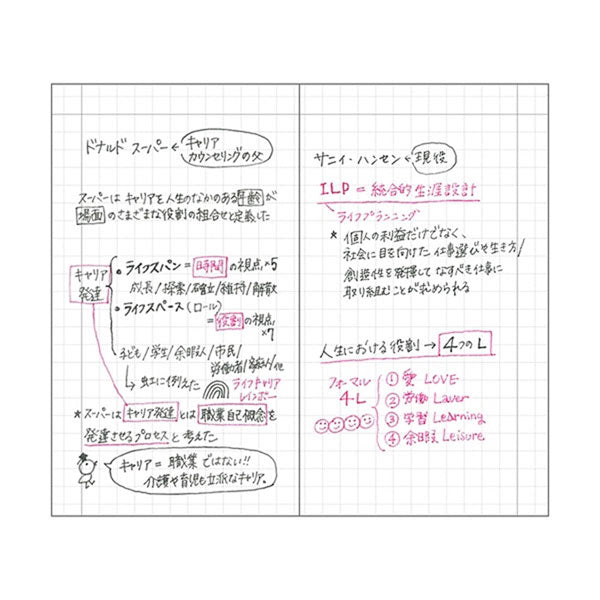 ドナルド スーパー ← キャリア
カウンセリングの父
スーパーは キャリアを人生のなかのある年齢が
場面のさまざまな役割の組合せと定義した
キャリア
発達
● ライフスパン = 時間 の視点 ×5
成長/探索/確立/維持/解散
● ライフスペース (ロール)
= 役割 の視点
×7
子ども/学生/余暇人/市民/
労働者/家庭人/他
↳ 虹に例えた
ライフキャリア
レインボー
* スーパーは キャリア発達 とは 職業自己概念 を
発達させるプロセスと考えた
キャリア = 職業 ではない!!
介護や育児も立派なキャリア。
サニィ・ハンセン ← 現役
ILP = 統合的生涯設計
ライフプランニング
* 個人の利益だけでなく、
社会に目を向けた 仕事選びや生き方/
創造性を発揮して なすべき仕事に
取り組むことが求められる
人生における役割 → 4つのL
フォーマル
4-L
① 愛 LOVE
② 労働 Laver
③ 学習 Learning
④ 余暇 Leisure